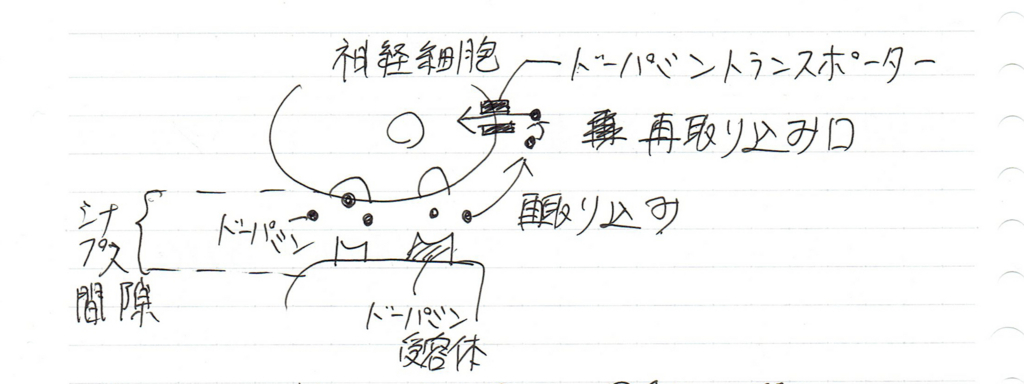 神経細胞
ドーパミントランスポーター
再取り込み口
再取り込み
シナ
プス
間隙
ドーパミン
ドーパミン
受容体